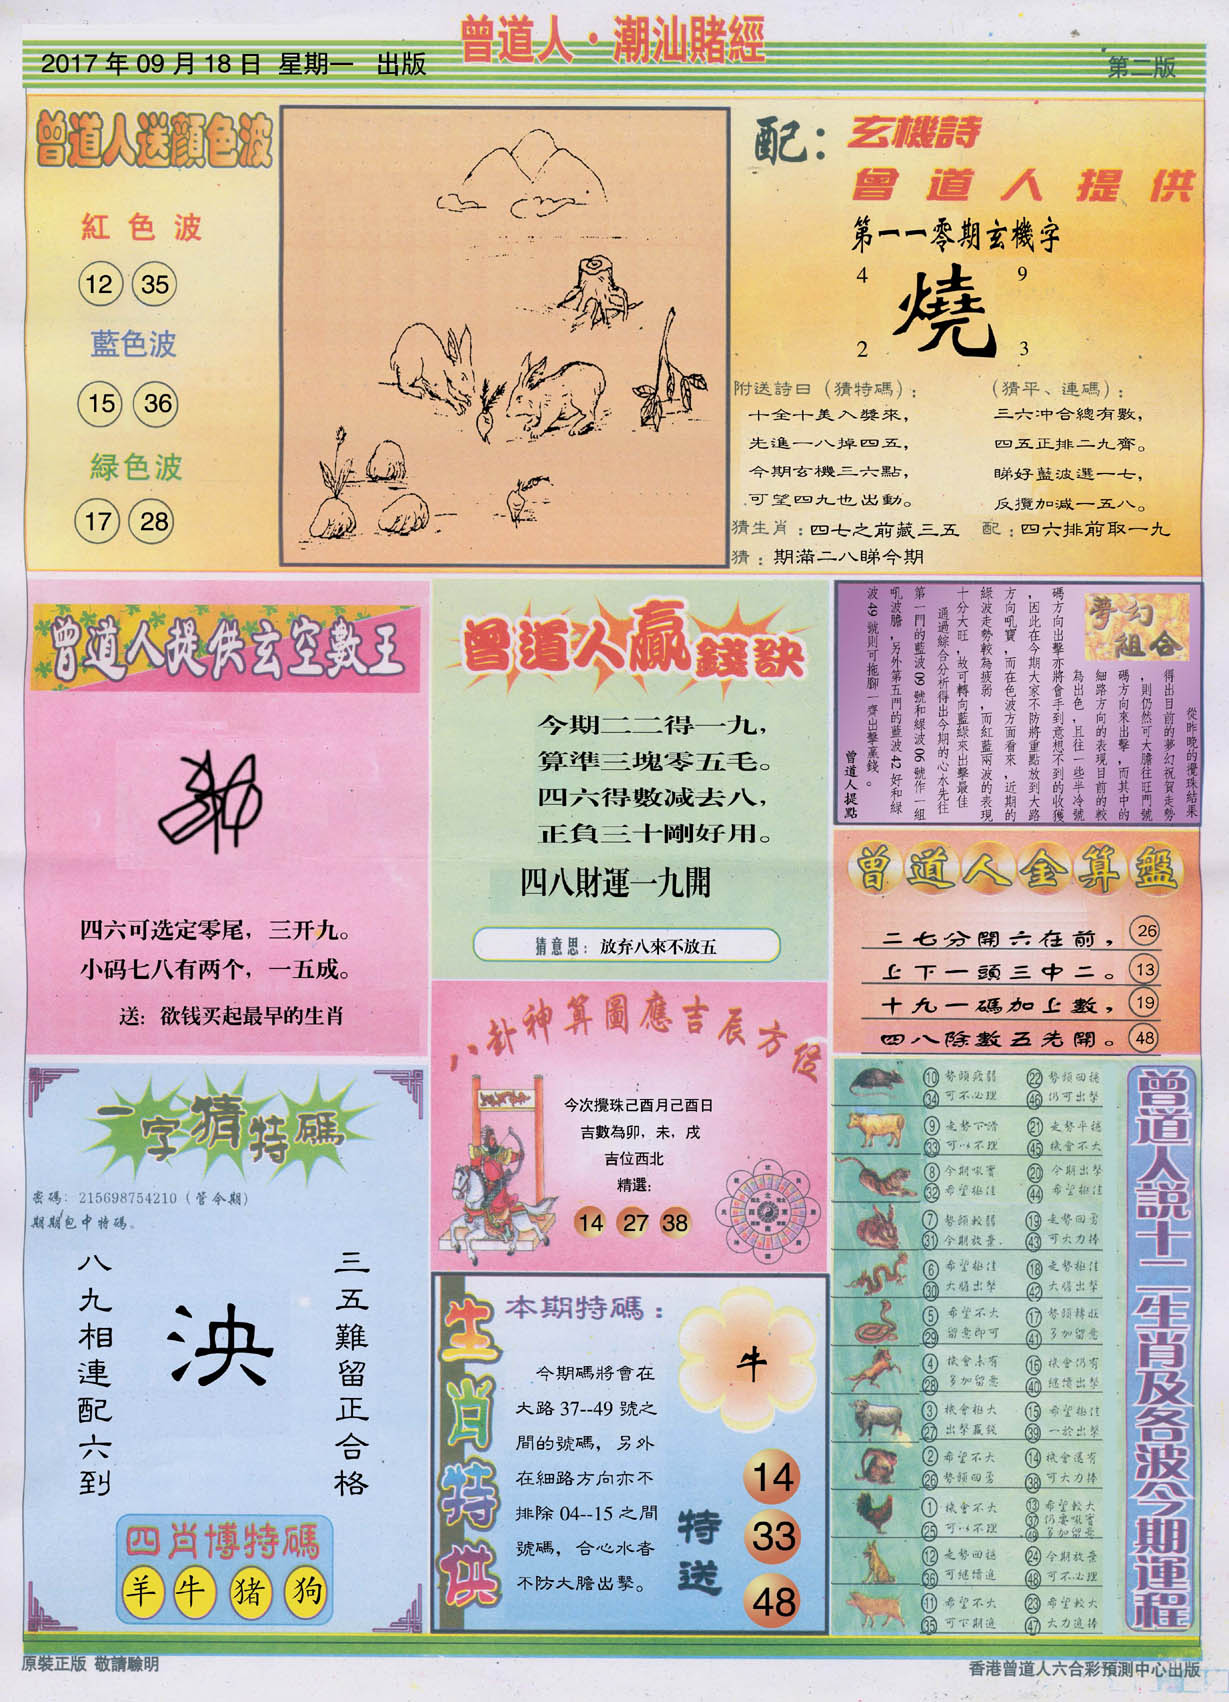 曾道人·潮汕賭經
2017年09月18日 星期一 出版
第二版
曾道人送顏色波
紅色波
12 35
藍色波
15 36
緑色波
17 28
配：玄機詩
曾道人提供
第一一零期玄機字
4 9
燒
2 3
附送詩曰（猜特碼）：
十全十美入獎來，
先進一八掉四五，
今期玄機三六點，
可望四九也出動。
（猜平、連碼）：
三六冲合總有數，
四五正排二九齊。
睇好藍波選一七，
反攬加减一五八。
猜生肖：四七之前藏三五 配：四六排前取一九
猜：期滿二八睇今期
曾道人提供玄空數王
四六可选定零尾，三开九。
小码七八有两个，一五成。
送：欲钱买起最早的生肖
曾道人贏錢訣
今期二二得一九，
算準三塊零五毛。
四六得數减去八，
正負三十剛好用。
四八財運一九開
猜意思：放弃八來不放五
夢幻組合
從昨晚的攪珠結果
得出目前的夢幻祝賀走勢
，則仍然可大膽往旺門號
碼方向來出擊，而其中的
細路方向的表現目前的較
為出色，且往一些半冷號
碼方向出擊亦將會手到意想不到的收獲
，因此在今期大家不防將重點放到大路
方向吼寶，而在色波方面看來，近期的
綠波走勢較為疲弱，而紅藍兩波的表現
十分大旺，故可轉向藍綠來出擊最佳
通過綜合分析得出今期的心水先往
第一門的藍波09號和綠波06號作一組
吼波膽，另外第五門的藍波42好和綠
波49號則可拖腳一齊出擊贏錢。
曾道人提點
曾道人金算盤
二七分開六在前， 26
上下一頭三中二。 13
十九一碼加上數， 19
四八除數五先開。 48
八卦神算圖應吉辰方位
今次攪珠己酉月己酉日
吉數為卯，未，戌
吉位西北
精選：
14 27 38
一字猜特碼
密碼：215698754210（管今期）
期期包中特碼。
三五難留正合格
泱
八九相連配六到
四肖博特碼
羊 牛 猪 狗
生肖特供
本期特碼：
牛
今期碼將會在
大路37--49號之
間的號碼，另外
在細路方向亦不
排除04--15之間
號碼，合心水者
不防大膽出擊。
特送
14
33
48
曾道人説十二生肖及各波今期運程
10 勢頭疲弱 22 勢頭回穩
34 可不必理 46 仍可出擊
9 走勢下滑 21 走勢平穩
33 可以不理 45 機會不大
8 今期吼寶 20 今期出擊
32 希望極佳 44 希望極佳
7 勢頭較弱 19 走勢回勇
31 今期放棄 43 可大力捧
6 希望極佳 18 走勢極佳
30 大膽出擊 42 大膽出擊
5 希望不大 17 勢頭轉旺
29 留意即可 41 多加留意
4 機會未有 16 機會仍有
28 多加留意 40 繼續出擊
3 機會極大 15 希望極佳
27 出擊贏錢 39 一於出擊
2 希望不大 14 機會還有
26 勢頭回勇 38 可大力捧
1 機會不大 13 希望較大
25 可以不理 37 仍要吼實
49 多加留意
12 走勢回穩 24 今期放棄
36 可繼續進 48 可不必理
11 希望不大 23 希望較大
35 可下期進 47 大力進捧
原裝正版 敬請驗明
香港曾道人六合彩預測中心出版